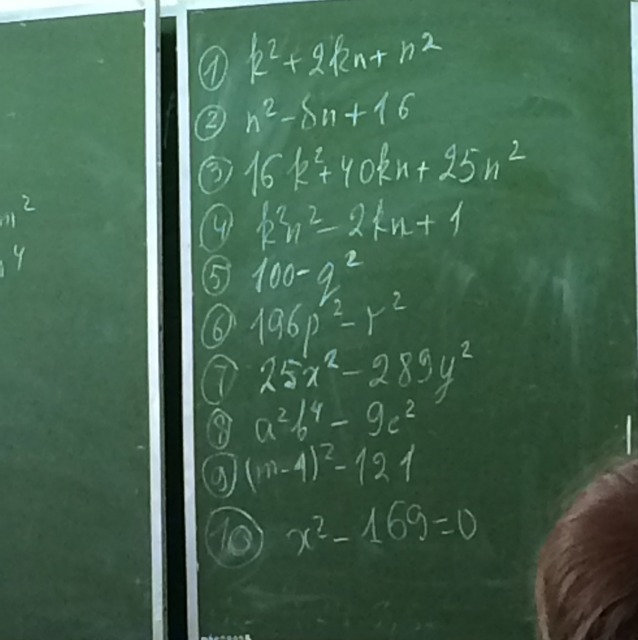 m²
⁴
① k² + 2kn + n²
② n² - 8n + 16
③ 16k² + 40kn + 25n²
④ k²n² - 2kn + 1
⑤ 100 - q²
⑥ 196p² - r²
⑦ 25x² - 289y²
⑧ a²b⁴ - 9c²
⑨ (m-1)² - 121
⑩ x² - 169 = 0